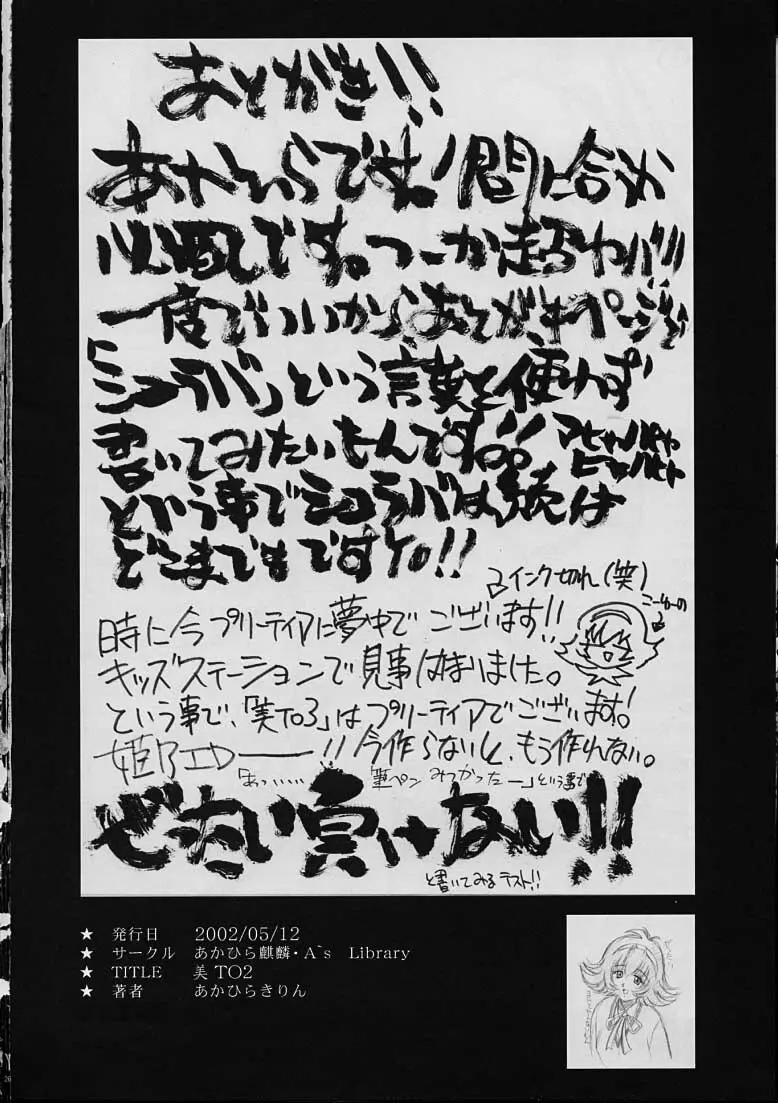 あとがき!!
あかひらです。!間に合うか
心配です。つーか超ヤバ!!
一度でいいからあとがきページで
「シュラバ」という言葉を使わず
書いてみたいもんです!!
という事でシュラバは続くよ
どこまでもですYO!!
インク切れ(笑)
こーゆーの
時に今プリーティアに夢中でございます!!
キッズステーションで見事はまりました。
という事で、「美TO3」はプリーティアでございます!
姫 ー!!今作らないと、もう作れない。
「あっ、、、、筆ペン みつかったー」という事で
ぜったい負けない!!
と書いてみるテスト!!
★ 発行日 2002/05/12
★ サークル あかひら麒麟・A`s Library
★ TITLE 美 TO2
★ 著者 あかひらきりん
26